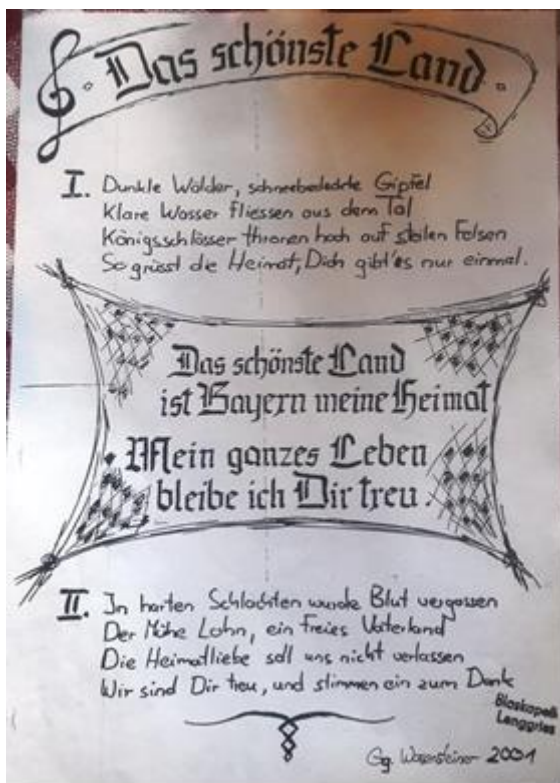 Das schönste Land
I. Dunkle Wälder, schneebedeckte Gipfel
Klare Wasser fliessen aus dem Tal
Königsschlösser thronen hoch auf stolen Felsen
So grüsst die Heimat, Dich gibt's nur einmal.
Das schönste Land
ist Bayern meine Heimat
Mein ganzes Leben
bleibe ich Dir treu.
II. In harten Schlachten wurde Blut vergossen
Der Mühe Lohn, ein freies Vaterland
Die Heimatliebe soll uns nicht verlassen
Wir sind Dir treu, und stimmen ein zum Dank
Blaskapelle
Lenggries
Gg. Wasensteiner 2001